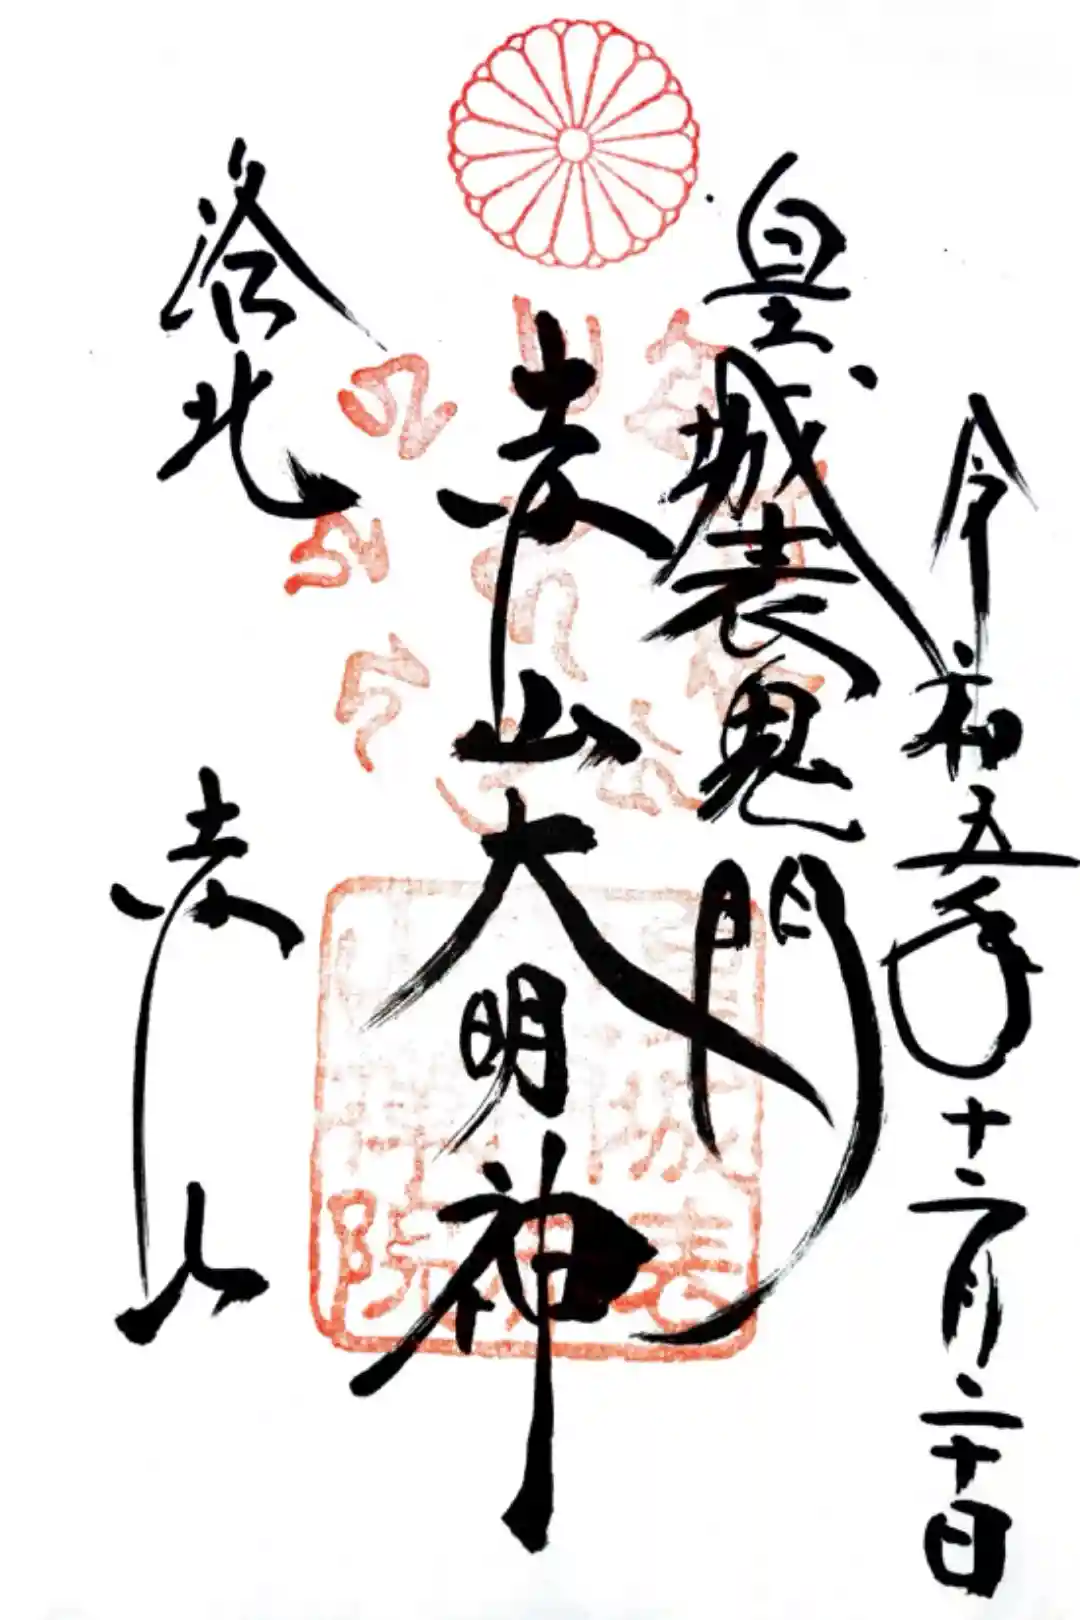 令和五年十二月二十日
皇城表鬼門
赤山大明神
洛北
赤山